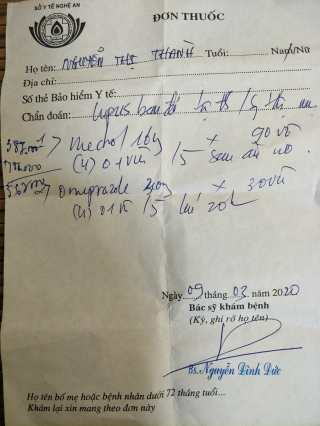 SỞ Y TẾ NGHỆ AN
ĐƠN THUỐC
Họ tên: NGUYỄN THỊ THANH Tuổi: Nam/Nữ
Địa chỉ:
Số thẻ Bảo hiểm Y tế:
Chẩn đoán: Lupus ban đỏ
Medrol 16mg x 90 viên
(U) 01 viên /S sau ăn no
Omeprazole 20mg x 30 viên
(U) 01 v /S lúc 20h
Ngày 09 tháng 03 năm 2020
Bác sỹ khám bệnh
(Ký, ghi rõ họ tên)
Bs. Nguyễn Đình Đức
Họ tên bố mẹ hoặc bệnh nhân dưới 72 tháng tuổi...
Khám lại xin mang theo đơn này